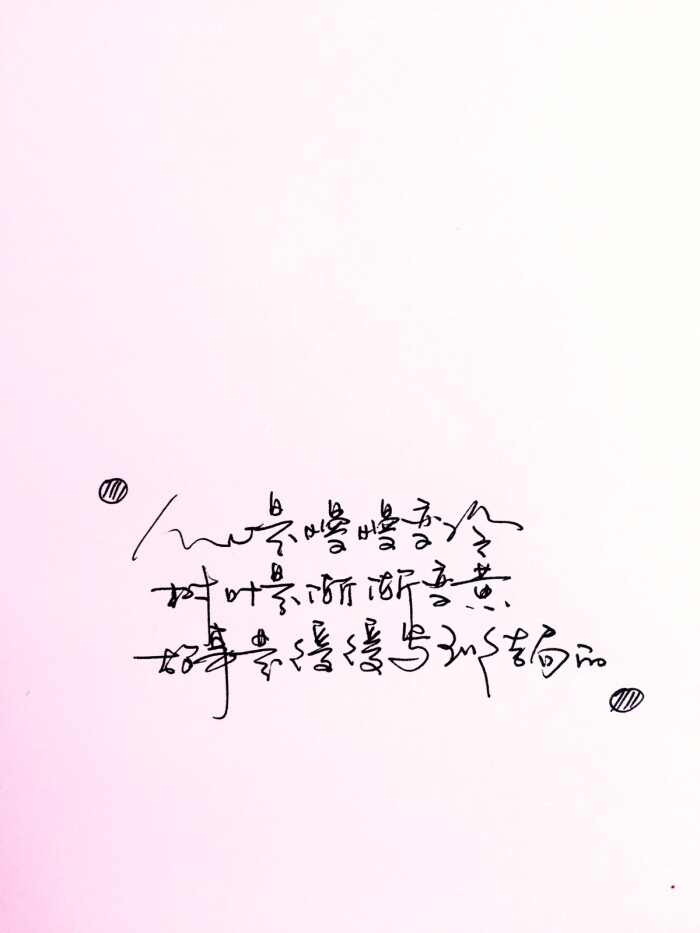 人心是慢慢变冷
树叶是渐渐变黄
故事是缓缓写到结局的